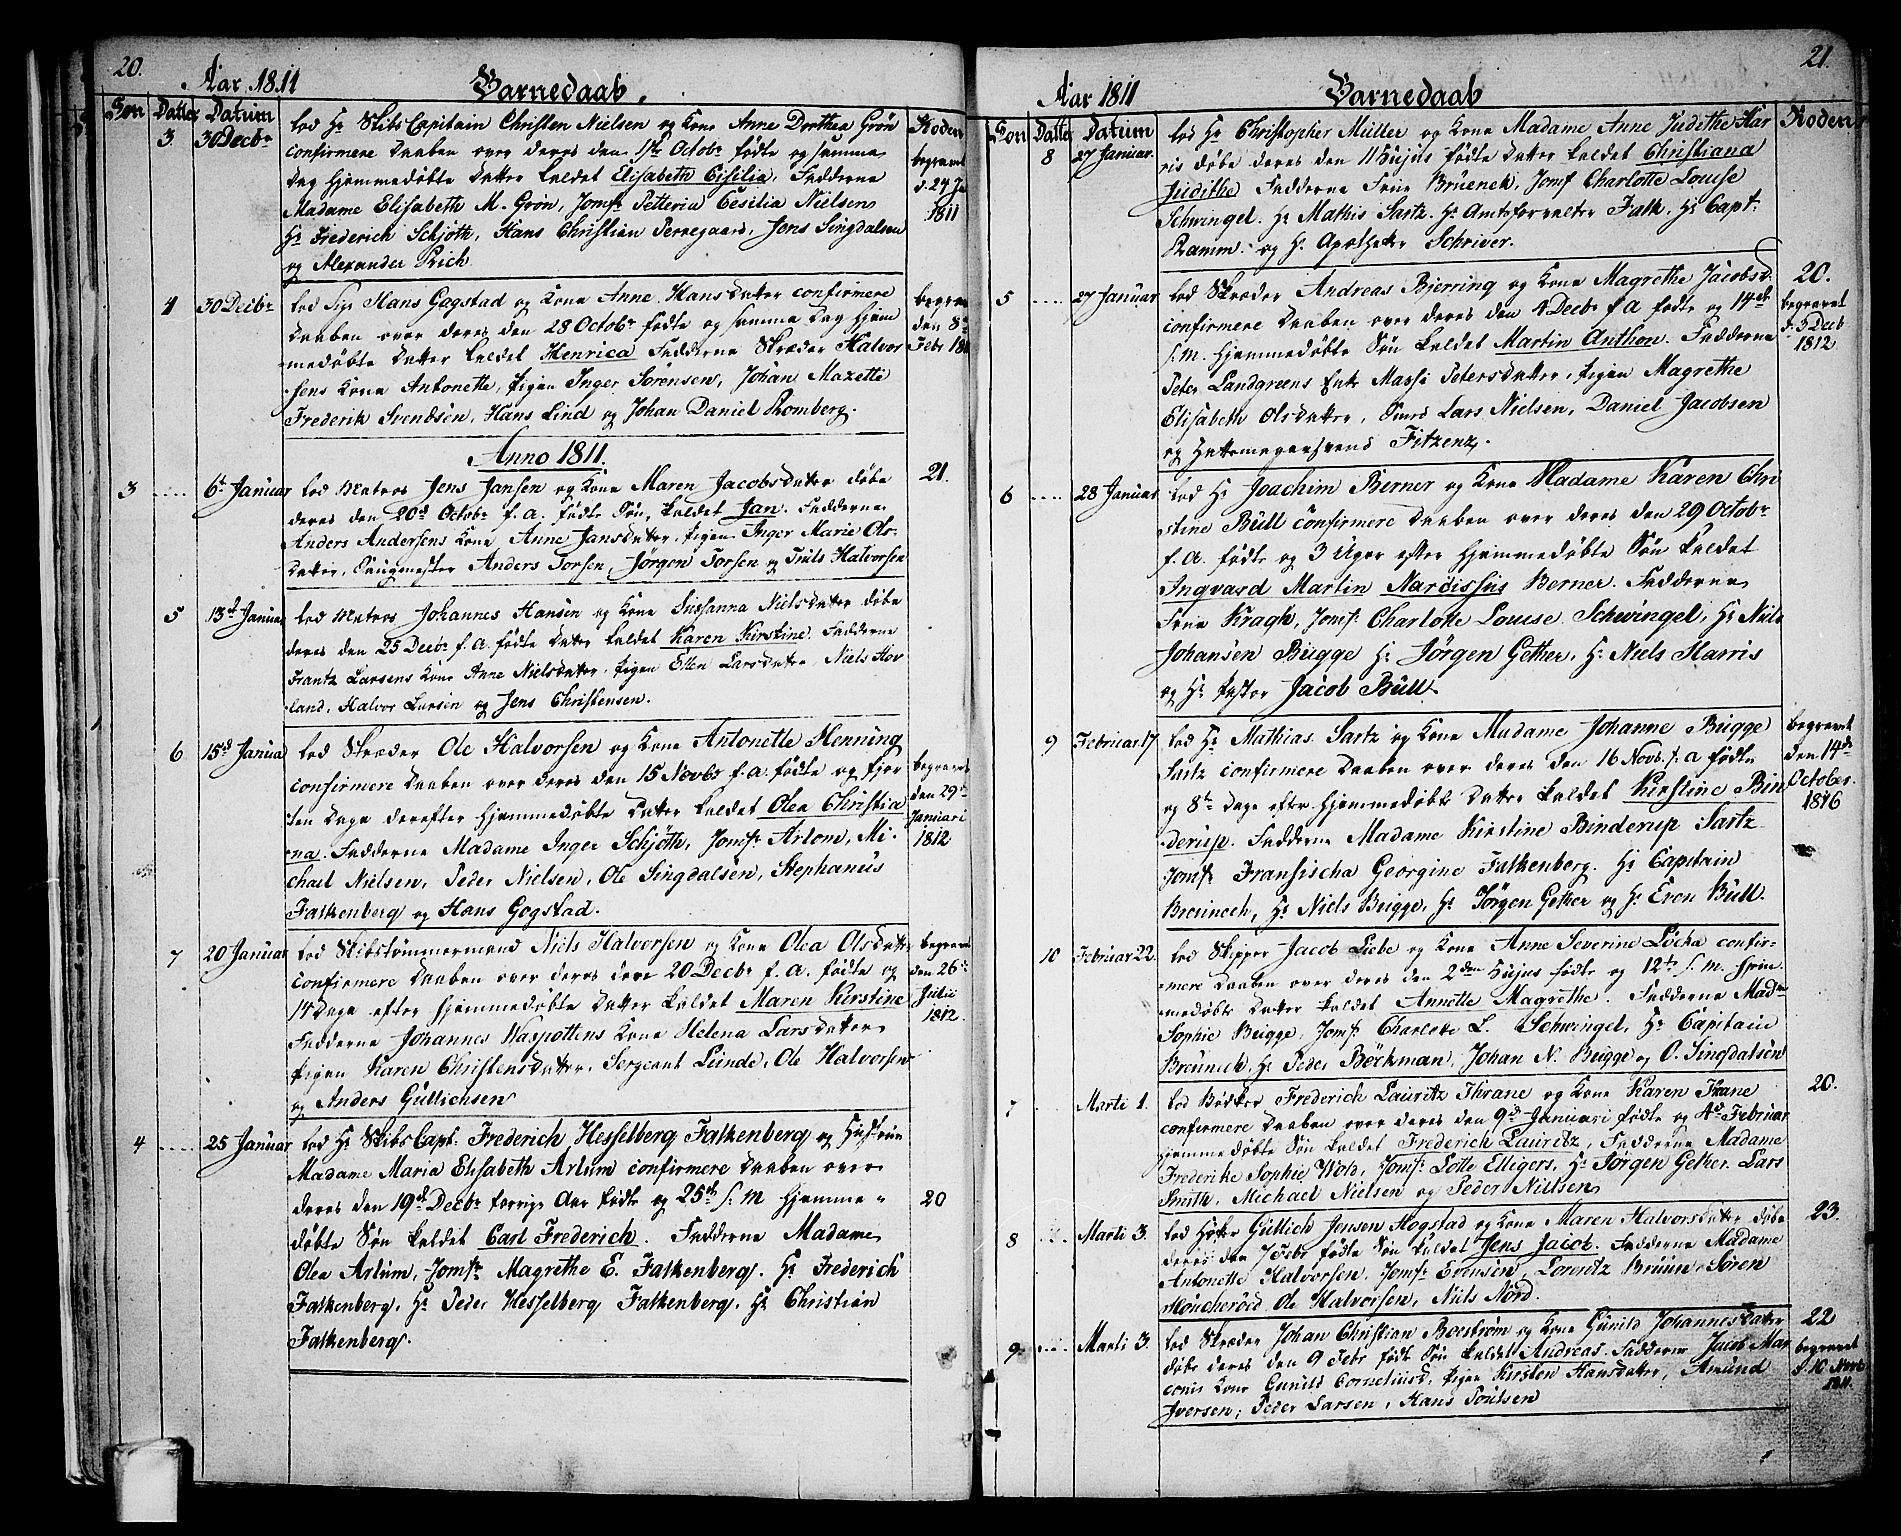 20.
Aar 1811 Barnedaab.
Søn Datter Datum Roden
3. 30 Decbr lod Hr SkibsCapitain Christen Nielsen og Kone Anne Dorthea Grøn
confirmere Daaben over deres den 1ste Octobr fødte og samme begravet
Dag hjemmedøbte Datter kaldet Elisabeth Cisilia, Fadderne d. 24 Ja
Madame Elisabeth M. Grøn, Jomfr Petteria Cesilia Nielsen 1811
Hr Frederich Schjøth, Hans Christian Perregaard, Jens Singdalsen
og Alexander Prich.
4 30 Decbr lod Sigr Hans Gogstad og Kone Anne Hansdatter confirmere begrav
Daaben over deres den 28 Octobr fødte og samme Dag hjem den 8de
medøbte Datter kaldet Henrica Fadderne Skræder Halvor Febr 18
sens Kone Antonette, Pigen Inger Sørensen, Johan Mazette
Frederik Svendsen, Hans Lind og Johan Daniel Romberg.
Anno 1811.
3 ..... 6te Januar lod Matros Jens Jansen og Kone Maren Jacobsdatter døbe 21.
deres den 20de Octobr f. a. fødte Søn, kaldet Jan. Fadderne
Anders Andersens Kone Anne Jansdatter, Pigen Inger Marie Ols-
datter, Saugmester Anders Torsen, Jørgen Torsen og Truls Halvorsen
5 13de Januar lod Matros Johannes Hansen og Kone Sussanna Nielsdatter døbe
deres den 25 Decbr f. a. fødte Datter kaldet Karen Kirstine. Fadderne
Frantz Larsens Kone Anne Nielsdatter, Pigen Ellen Larsdatter, Niels Hov
land, Halvor Larsen og Jens Christensen.
6 15de Janua lod Skræder Ole Halvorsen og Kone Antonette Henning
confirmere Daaben over deres den 15 Novbr f. a. fødte og fjor begravet
ten Dage derefter hjemmedøbte Datter kaldet Olea Christia den 29de
na. Fadderne Madame Inger Schjøth, Jomfr Artom, Mi- Januari
chael Nielsen, Peder Nielsen, Ole Singdalsen, Stephanus 1812
Falkenberg og Hans Gogstad.
7 20 Januar lod Skibstømmermand Niels Halvorsen og Kone Olea Olsdatter begravet
confirmere Daaben over deres den 20 Decbr f. a. fødte og den 26de
14 Dage efter hjemmedøbte Datter kaldet Maren Kirstine Julii
Fadderne Johannes Waspottens Kone Helena Larsdatter 1812.
Pigen Karen Christensdatter, Sergeant Lunde, Ole Halvorsen
og Anders Gullichsen
4 ..... 25 Januar lod Hr SkibsCapt: Frederich Hesselberg Falkenberg og Hustrue
Madame Maria Elisabeth Artum confirmere Daaben over
deres den 19de Decbr forrige Aar fødte og 25de s: M hjemme- 20
døbte Søn kaldet Carl Frederich. Fadderne Madame
Olea Artum, Jomfr Magrethe E. Falkenberg. Hr Frederich
Falkenberg. Hr Peder Hesselberg Falkenberg. Hr Christian
Falkenberg.
21.
Aar 1811 Barnedaab
Søn Datter Datum Roden
8 27 Januar. lod Hr Christopher Müller og Kone Madame Anne Judithe Har
ris døbe deres den 11 Hujus fødte Datter kaldet Christiana
Judithe Fadderne Frue Brüenech, Jomf Charlotte Louise
Schwingel. Hr Mathis Sartz. Hr Amtsforvalter Falk. Hr Capt:
Ramm. og Hr Apotheker Schriver.
5 .... 27 Januar lod Skræder Andreas Bjerring og Kone Magrethe Jacobsd: 20.
confirmere Daaben over deres den 4 Decbr f. a fødte og 14de begravet
s. M. hjemmedøbte Søn kaldet Martin Anthon. Fadderne d. 5 Decb
Peter Landgreens Enke Massi Petersdatter, Pigen Magrethe 1812
Elisabeth Olsdatter, Smed Lars Nielsen, Daniel Jacobsen
og Hattemagersvend Fitzenz.
6 .... 28 Januar lod Hr Joachim Berner og Kone Madame Karen Chri
stine Bull confirmere Daaben over deres den 29 Octobr
f. a. fødte og 3 Uger efter hjemmedøbte Søn kaldet
Ingvard Martin Nardissus Berner. Fadderne
Frue Kragh, Jomf: Charlotte Louise Schwingel, Hr Niels
Johansen Bugge Hr Jørgen Gether, Hr Niels Harris
og Hr Pastor Jacob Bull.
9 Februar. 17 lod Hr Mathias Sartz og Kone Madame Johanne Bugge begravet
Sartz confirmere Daaben over deres den 16 Novb. f. a fødte den 14de
og 8te Dage efter hjemmedøbte Datter kaldet Kirstine Bin October
derup. Fadderne Madame Kirstine Binderup Sartz 1816
Jomfr Fransischa Georgine Falkenberg. Hr Capitain
Breunech, Hr Niels Bugge, Hr Jørgen Gether og Hr Even Bull.
10 Februar 22. lod Skipper Jacob Liebe og Kone Anne Severine Löcha confir-
mere Daaben over deres den 2den Hujus fødte og 12te s. M. hjem-
medøbte Datter kaldet Annette Magrethe. Fadderne Madme
Sophie Bugge, Jomf: Charlotte L. Schwingel, Hr Capitain
Breunech, Hr Peder Börkman, Johan N. Bugge og O. Singdalsen
7 .... Marti 1. lod Bødker Frederich Lauritz Thrane og Kone Karen Thrane 20.
confirmere Daaben over deres den 9de Januari fødte og 4de Februar
hjemmedøbte Søn kaldet Frederich Lauritz, Fadderne Madame
Frederike Sophie Wold, Jomfr Lotte Elligers, Hr Jørgen Gether. Lars
Smith, Michael Nielsen og Peder Nielsen
8 ... Marti 3. lod Høker Gullich Jensen Hogstad og Kone Maren Halvorsdatter døbe 23.
deres den 7 Febr fødte Søn kaldet Jens Jacob. Fadderne Madame
Antonette Halvorsen, Jomfr Evensen, Lorentz Bruun. Søren
Muncherød. Ole Halvorsen, Niels Nord.
9 .... Marti 3. lod Skræder Johan Christian Boestrøm og Kone Gunild Johannesdatter 22
døbe deres den 9 Febr fødte Søn kaldet Andreas. Fadderne Jacob Mar begravet
coni Kone Gunild Corneliusd, Pigen Kirsten Hansdatter, Amund d. 10 Novb
Iversen, Peder Larsen, Hans Poulsen 1811.